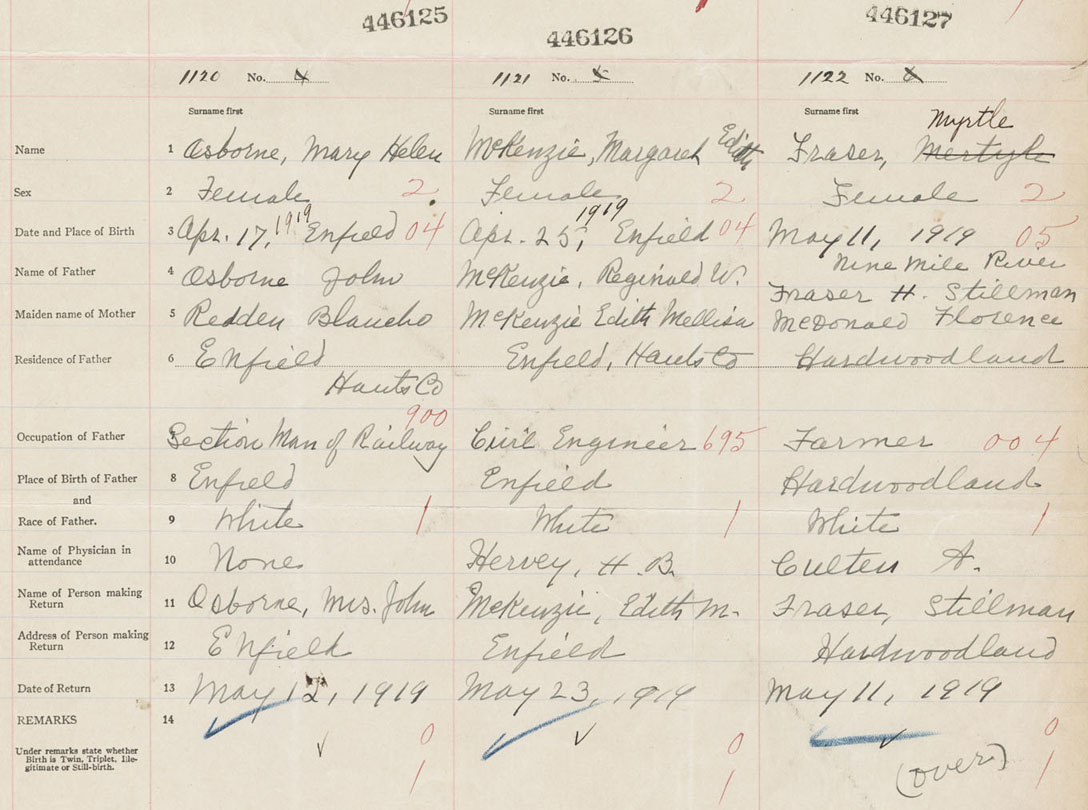 446125 446126 446127
1120 No. 4 1121 No. 5 1122 No. 6
Surname first Surname first Surname first
Myrtle
Name 1 Osborne, Mary Helen McKenzie, Margaret Edith Fraser, Mertyle
Sex 2 Female 2 Female 2 Female 2
Date and Place of Birth 3 Apr. 17, 1919 Enfield 04 Apr. 25, 1919 Enfield 04 May 11, 1919 05
Nine Mile River
Name of Father 4 Osborne John McKenzie, Reginald W. Fraser H. Stillman
Maiden name of Mother 5 Redden Blanche McKenzie Edith Mellisa McDonald Florence
Residence of Father 6 Enfield Enfield, Hants Co Hardwoodland
Hants Co
900
Occupation of Father Section Man of Railway Civil Engineer 695 Farmer 004
Place of Birth of Father 8 Enfield Enfield Hardwoodland
and
Race of Father. 9 White 1 White 1 White 1
Name of Physician in
attendance 10 None Hervey, H. B. Culten A.
Name of Person making
Return 11 Osborne, Mrs. John McKenzie, Edith M. Fraser, Stillman
Address of Person making
Return 12 Enfield Enfield Hardwoodland
Date of Return 13 May 12, 1919 May 23, 1919 May 11, 1919
REMARKS 14
0 0 0
Under remarks state whether
Birth is Twin, Triplet, Ille-
gitimate or Still-birth.
1 1 (over) 1